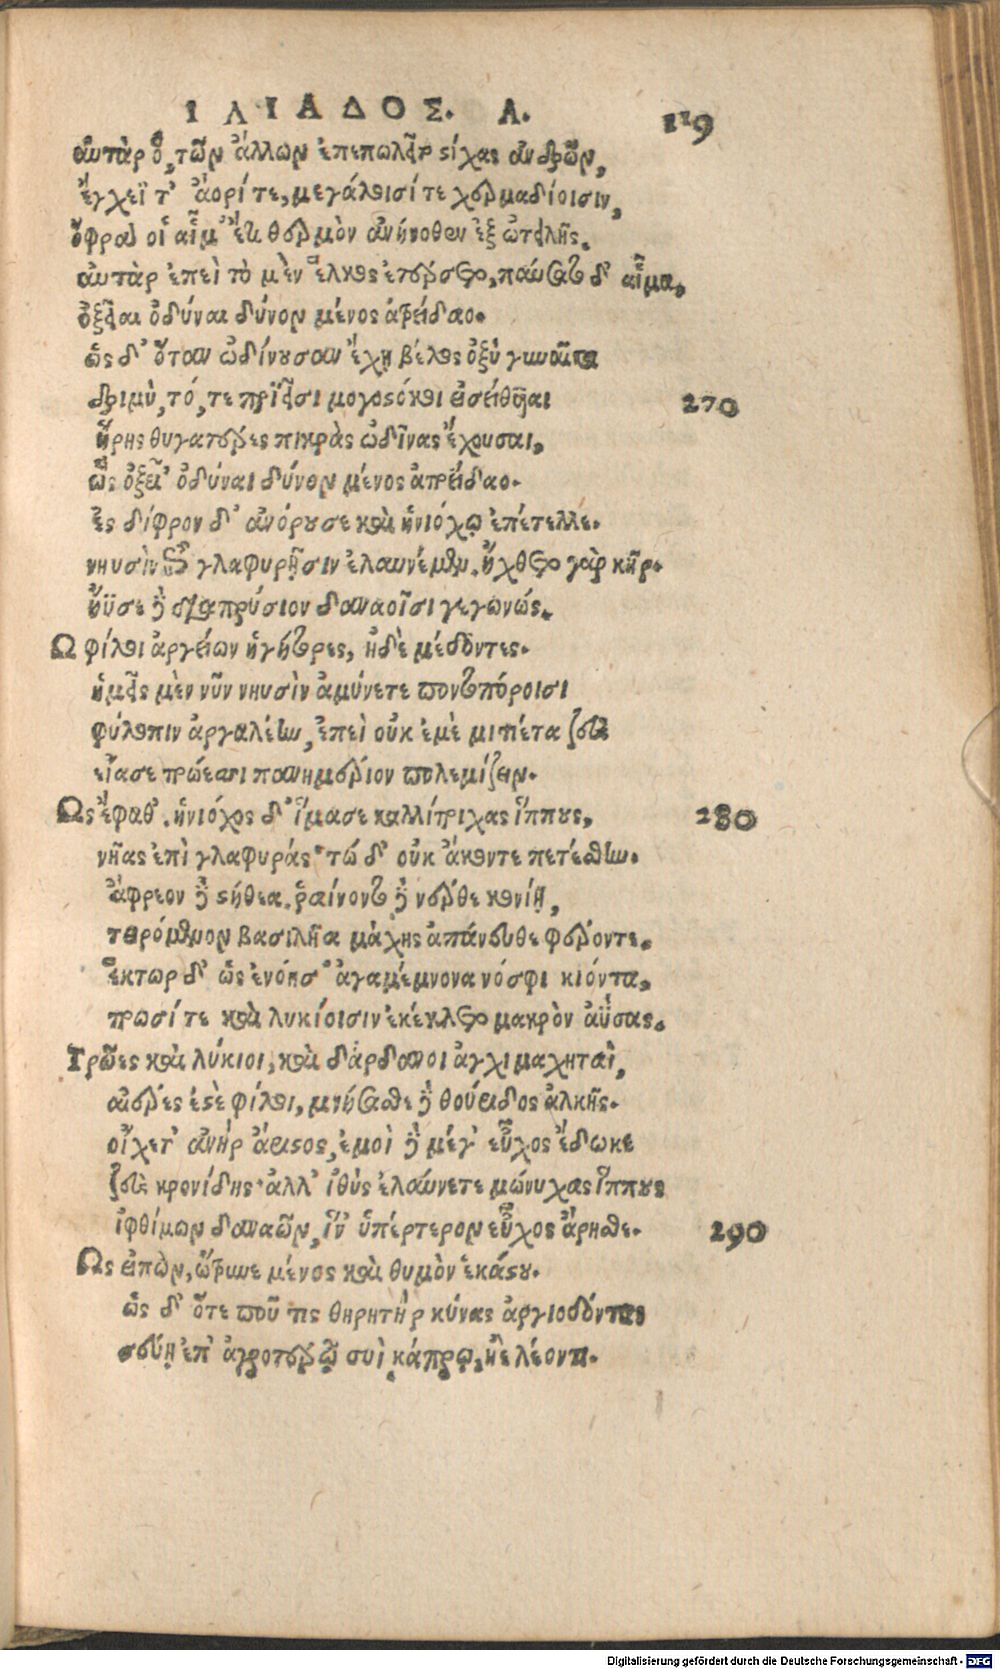 ΙΛΙΑΔΟΣ. Λ. 119
αὐτὰρ ὃ, τῶν ἄλλων ἐπεπωλεῖτο στίχας ἀνδρῶν,
ἔγχεΐ τ' ἄορί τε, μεγάλοισί τε χερμαδίοισιν,
ὄφρα οἱ αἷμ' ἔτι θερμὸν ἀνήνοθεν ἐξ ὠτειλῆς.
αὐτὰρ ἐπεὶ τὸ μὲν ἕλκος ἐτέρσετο, παύσατο δ' αἷμα,
ὀξεῖαι ὀδύναι δύνον μένος ἀτρείδαο.
ὡς δ' ὅταν ὠδίνουσαν ἔχῃ βέλος ὀξὺ γυναῖκα
δριμὺ, τό, τε προϊεῖσι μογοστόκοι εἰλείθυιαι 270
ἥρης θυγατέρες πικρὰς ὠδῖνας ἔχουσαι,
ὣς ὀξεῖ' ὀδύναι δύνον μένος ἀτρείδαο.
ἐς δίφρον δ' ἀνόρουσε καὶ ἡνιόχῳ ἐπέτελλε.
νηυσὶν ἐπὶ γλαφυρῇσιν ἐλαυνέμεν. ἤχθετο γὰρ κῆρ.
ἤϋσε δὲ διαπρύσιον δαναοῖσι γεγωνώς.
Ω φίλοι ἀργείων ἡγήτορες, ἠδὲ μέδοντες.
ἡμεῖς μὲν νῦν νηυσὶν ἀμύνετε ποντοπόροισι
φύλοπιν ἀργαλέην, ἐπεὶ οὐκ ἐμὲ μητίετα ζεὺς
εἴασε τρώεσσι πανημέριον πολεμίζειν.
Ως ἔφαθ'. ἡνιόχος δ' ἵμασε καλλίτριχας ἵππους, 280
νῆας ἐπὶ γλαφυράς· τώ δ' οὐκ ἄκοντε πετέσθην.
ἄφρεον δὲ στήθεα. ῥαίνοντο δὲ νέρθε κονίῃ,
τειρόμενον βασιλῆα μάχης ἀπάνευθε φέροντε.
ἕκτωρ δ' ὡς ἐνόησ' ἀγαμέμνονα νόσφι κιόντα,
τρωσί τε καὶ λυκίοισιν ἐκέκλετο μακρὸν ἀΰσας.
Τρῶες καὶ λύκιοι, καὶ δάρδανοι ἀγχιμαχηταὶ,
ἀνέρες ἐστὲ φίλοι, μνήσασθε δὲ θούριδος ἀλκῆς.
οἴχετ' ἀνὴρ ἄριστος, ἐμοὶ δὲ μέγ' εὖχος ἔδωκε
ζεὺς κρονίδης· ἀλλ' ἰθὺς ἐλαύνετε μώνυχας ἵππους
ἰφθίμων δαναῶν, ἵν' ὑπέρτερον εὖχος ἄρησθε. 290
Ως εἰπὼν, ὤτρυνε μένος καὶ θυμὸν ἑκάστου.
ὡς δ' ὅτε πού τις θηρητὴρ κύνας ἀργιοδόντας
σεύῃ ἐπ' ἀγροτέρῳ συῒ κάπρῳ, ἠὲ λέοντι.
Digitalisierung gefördert durch die Deutsche Forschungsgemeinschaft - DFG